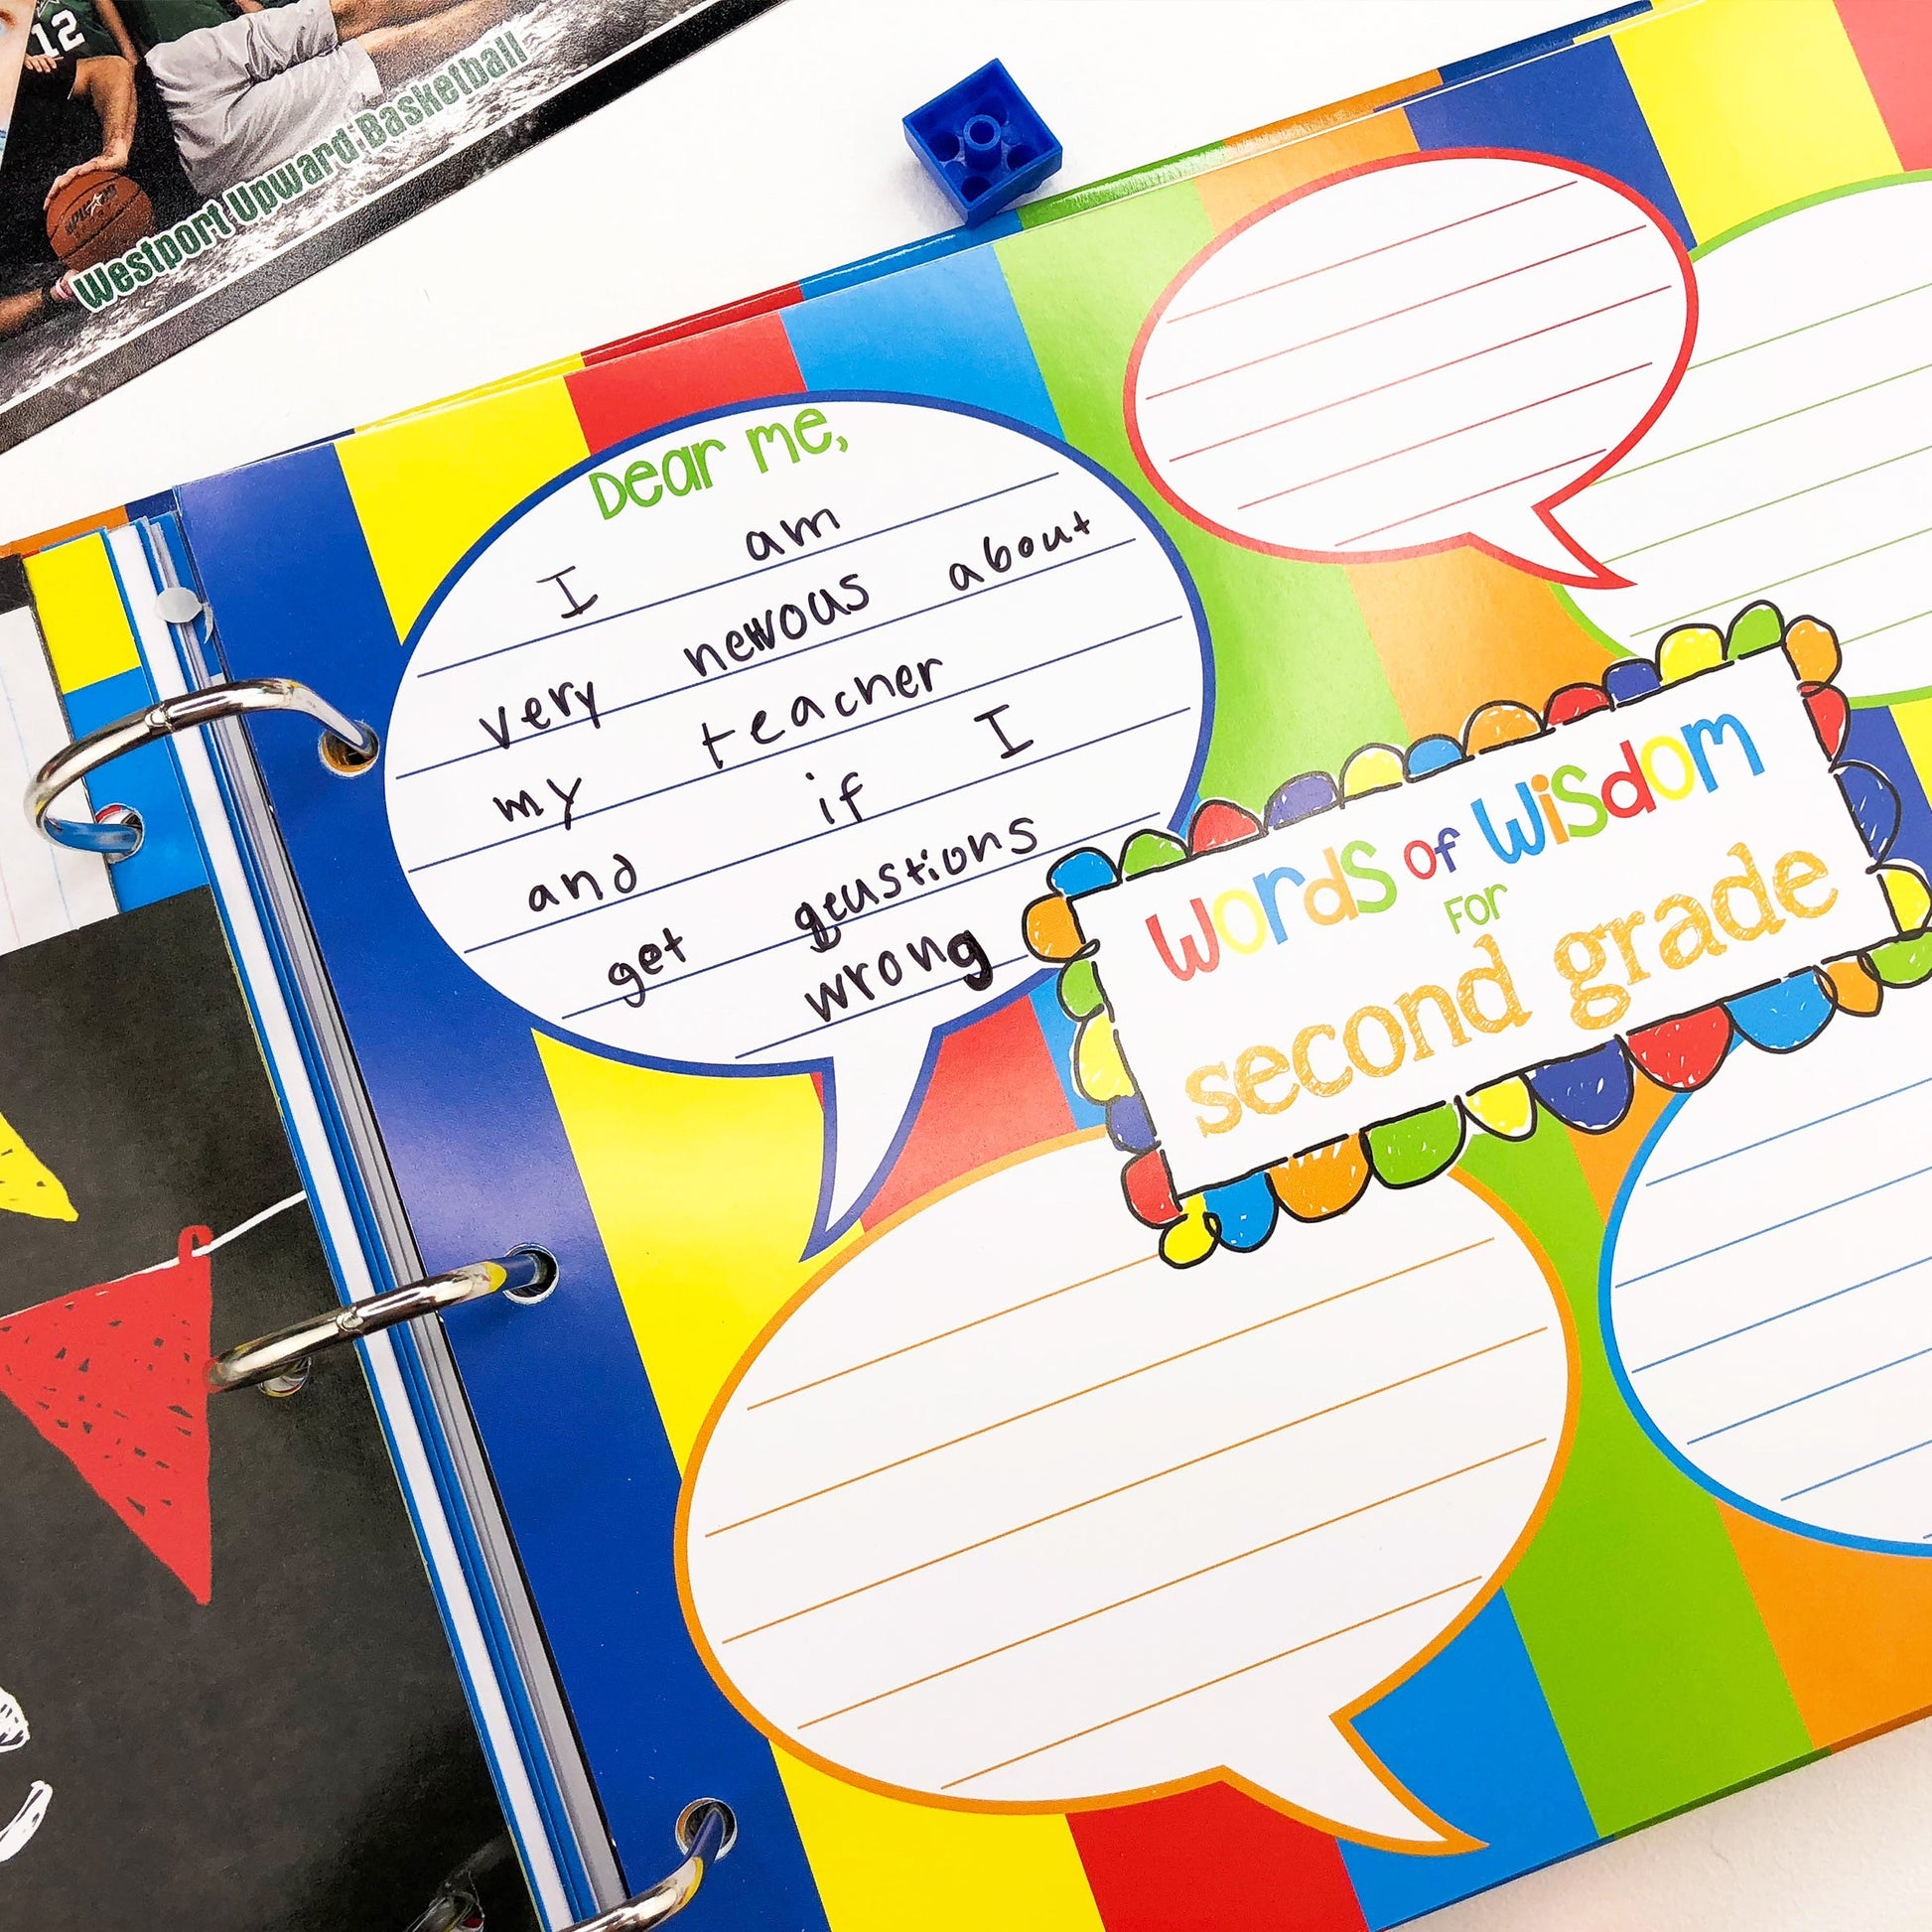 12
Westport Upward Basketball
Dear me,
I am
very nervous about
my teacher
and if I
get geustions
wrong
Words of Wisdom
FOR
second grade